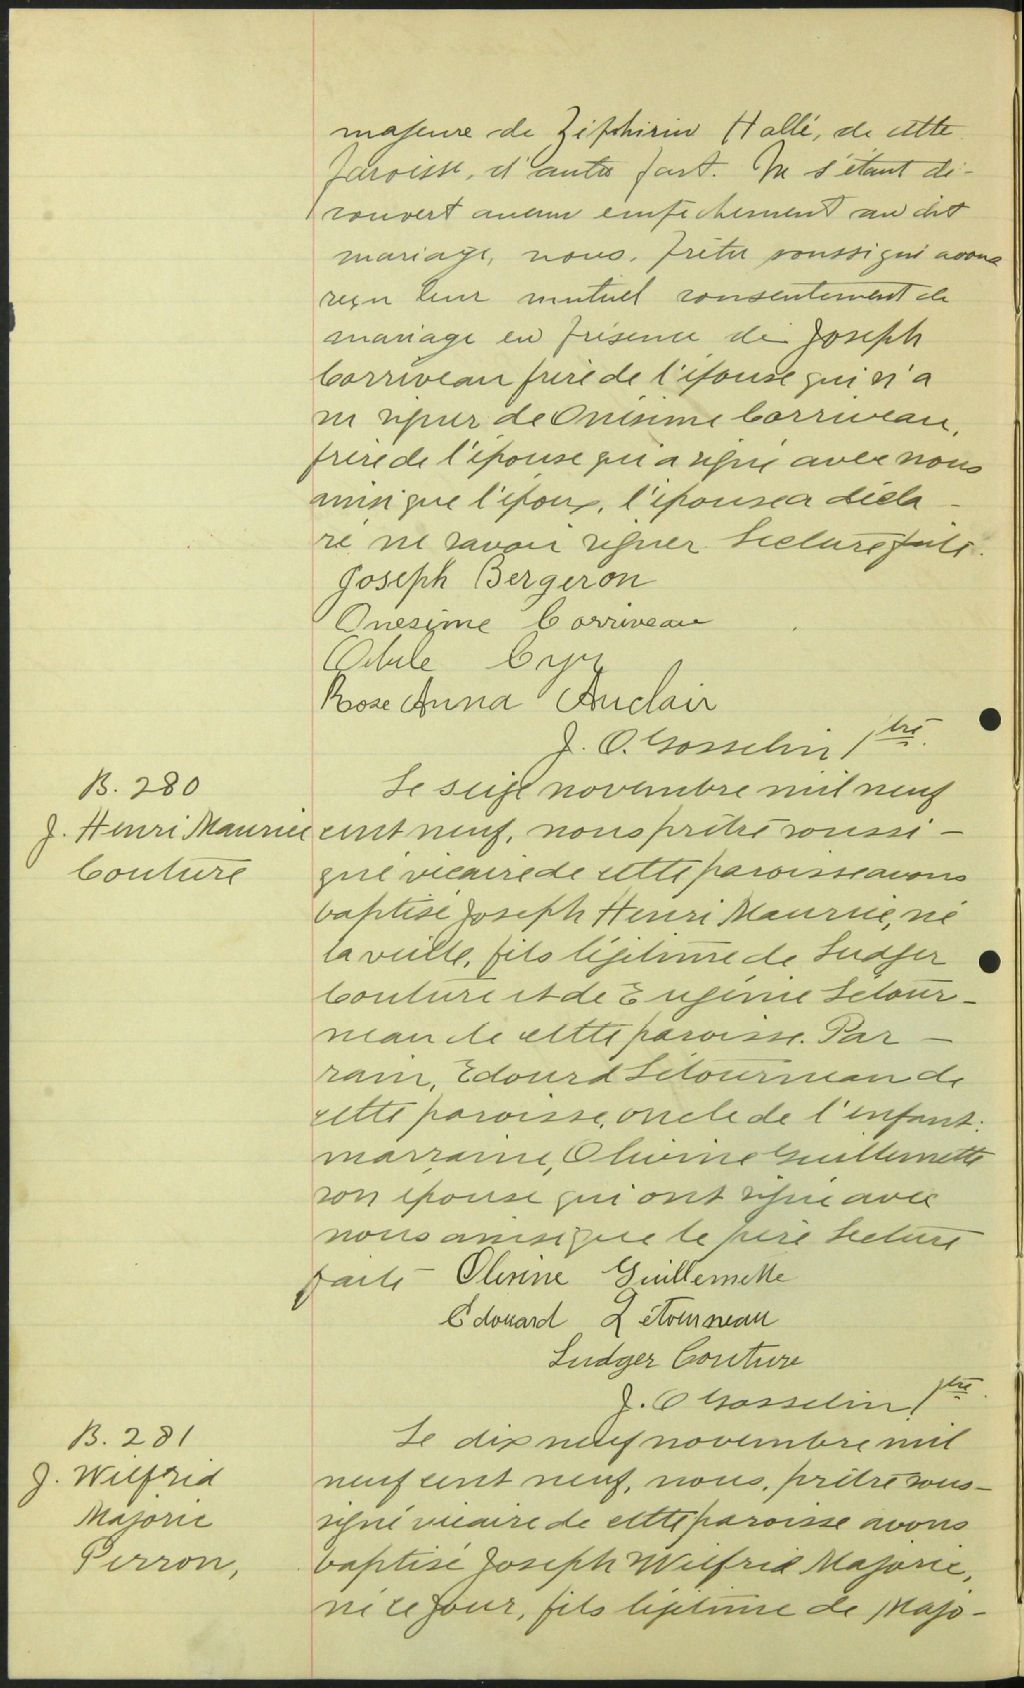 majeure de Ziphirin Hallé, de cette
paroisse, d'autre part. Ne s'étant dé-
couvert aucun empêchement au dit
mariage, nous, prêtre soussigné avons
reçu leur mutuel consentement de
mariage en présence de Joseph
Corriveau frère de l'épouse qui n'a
su signer de Onésime Corriveau,
frère de l'épouse qui a signé avec nous
ainsi que l'époux, l'épouse a décla-
ré ne savoir signer. Lecture faite.
Joseph Bergeron
Onesime Corriveau
Cyr
Rose Anna Auclair
J. O. Gosselin Ptre.
B. 280
J. Henri Maurice
Couture
Le seize novembre mil neuf
cent neuf, nous prêtre soussi-
gné vicaire de cette paroisse avons
baptisé Joseph Henri Maurice, né
la veille, fils légitime de Ludger
Couture et de Eugénie Létour-
neau de cette paroisse. Par-
rain, Edourd Létourneau de
cette paroisse, oncle de l'enfant:
marraine, Olivine Guillemette
son épouse qui ont signé avec
nous ainsi que le père Lecture
faite Olivine Guillemette
Edouard Létourneau
Ludger Couture
J. O Gosselin Ptre.
B. 281
J. Wilfrid
Majoric
Perron,
Le dix neuf novembre mil
neuf cent neuf, nous, prêtre sous-
signé vicaire de cette paroisse avons
baptisé Joseph Wilfrid Majoric,
né ce jour, fils légitime de Majo-